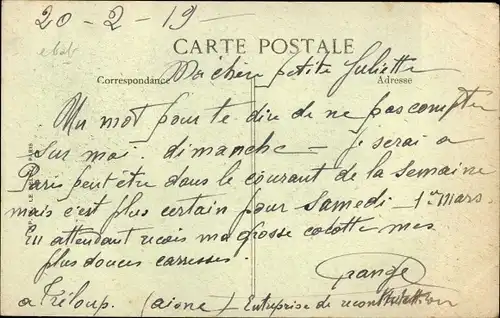 20-2-19-
CARTE POSTALE
Correspondance
Adresse
Ma chère petite Juliette
Un mot pour te dire de ne pas compter
sur moi dimanche - je serai a
Paris peut être dans le courant de la semaine
mais c'est plus certain pour samedi 1er Mars.
En attendant recois ma grosse cocotte mes
plus douces caresses.
a Tréloup. (aisne) Entreprise de reconstruction